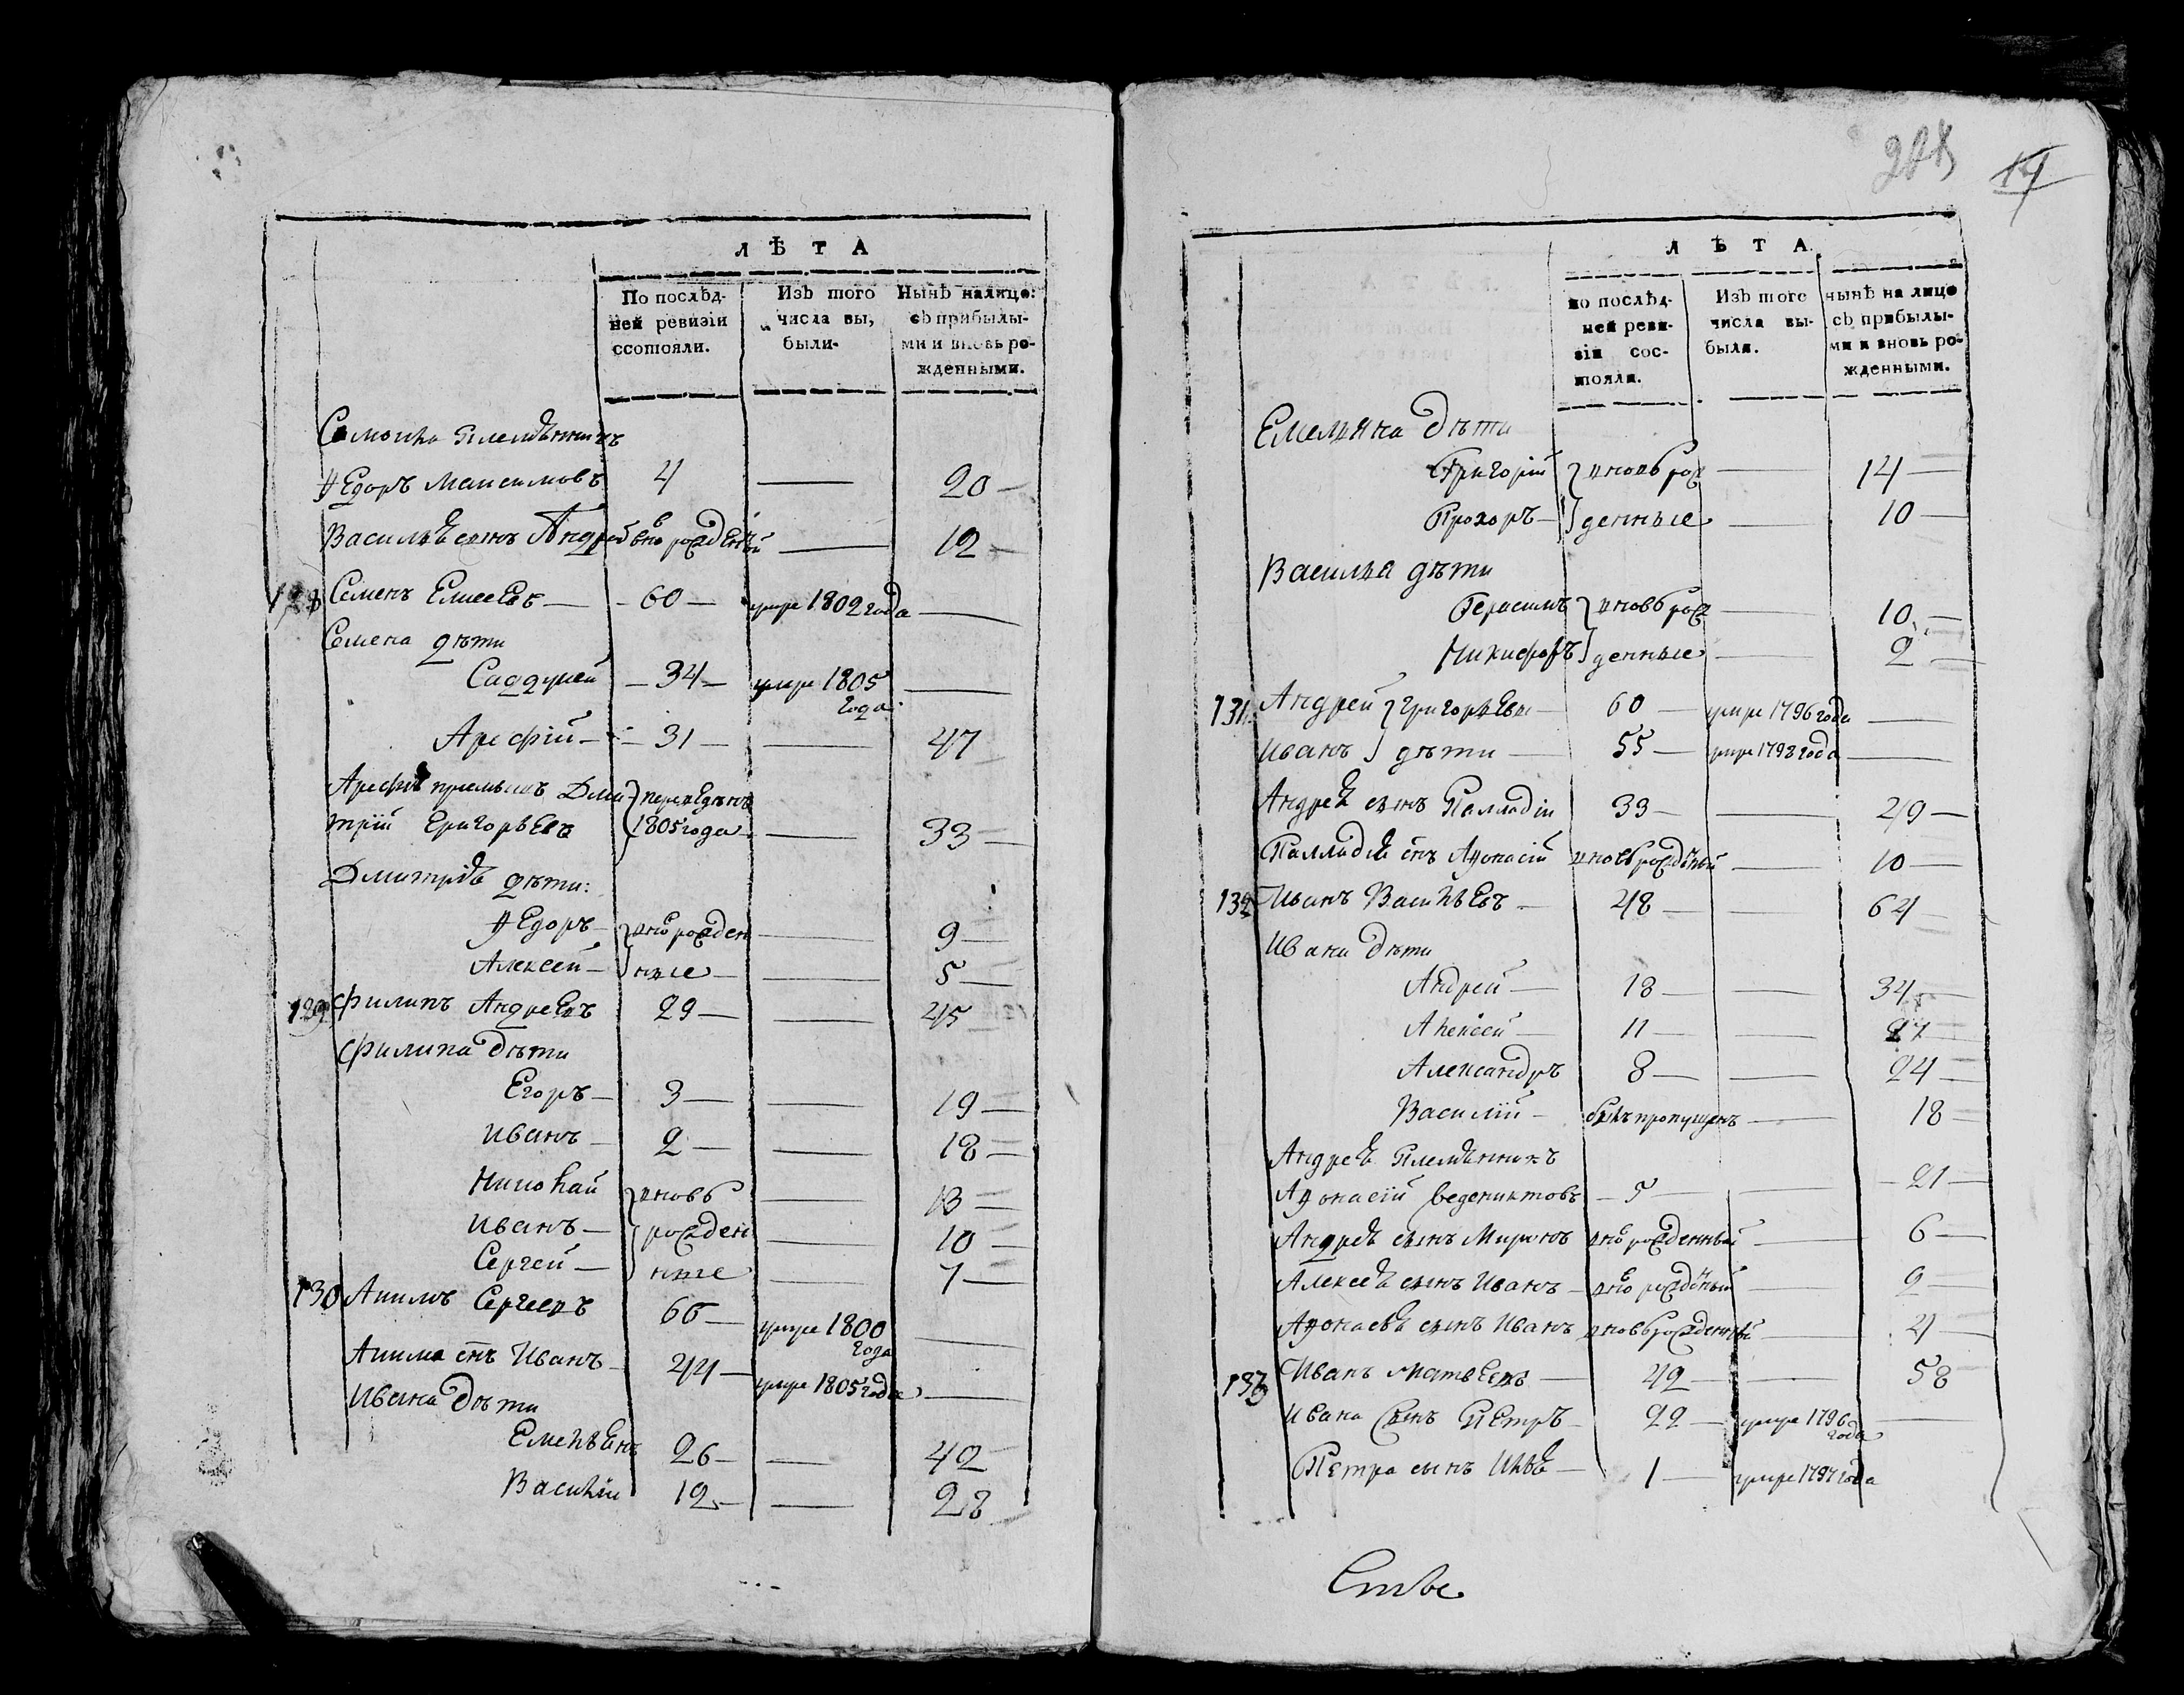 Л Ѣ Т А
По послѣд-
ней ревизіи
ссотояли.
Изъ того
числа вы,
были.
Нынѣ налице:
съ прибылы-
ми и вновь ро-
жденными.
племянникъ
Ѳедоръ Максимовъ 4 — 20 —
Василья сынъ Андрей вновь рожденный — 12 —
128 Семенъ Елисеевъ — 60 — умре 1802 года —
Семена дѣти
— 34 — умре 1805 —
года
Арефій — 31 — — 47
Арефія премышъ Дми- переведенъ
трій Григорьевъ 1805 года — 33 —
Дмитрія дѣти:
Ѳедоръ вновь рожден — 9 —
Алексей — ные — — 5 —
129 Филипъ Андреевъ 29 — — 45
Филипа дѣти
Егоръ — 3 — — 19 —
Иванъ — 2 — — 18 —
Николай вновь — 13 —
Иванъ — рожден — 10 —
Сергей — ные — 7 —
130 Акимъ Сергеевъ 66 — умре 1800 —
года
Акима снъ Иванъ — 44 — умре 1805 года —
Ивана дѣти
Емельянъ 26 — — 42
Василій 12 — — 28
14
Л Ѣ Т А.
по послѣд-
ней реви-
зіи сос-
тояли.
Изъ того
числа вы-
были.
нынѣ на лице
съ прибылы-
ми и вновь ро-
жденными.
Емельяна дѣти
Григорій вновь рож — 14 —
Прохоръ — денные — 10 —
Василья дѣти
Герасимъ вновь рож — 10 —
Никифоръ денные — 2 —
131 Андрей Григорьевы — 60 — умре 1796 года —
Иванъ дѣти — 55 — умре 1798 года —
Андрея сынъ Палладій 33 — — 49 —
Палладія снъ Аѳонасій вновь рожденный — 10 —
132 Иванъ Васильевъ — 48 — — 64 —
Ивана дѣти
Андрей — 18 — — 34 —
Алексей — 11 — — 27 —
Александръ 8 — — 24 —
Василій — былъ пропущенъ — 18 —
Андрея племянникъ
Аѳонасій Ведениктовъ — 5 — — 21 —
Андрея сынъ Миронъ вновь рожденный — 6 —
Алексея сынъ Иванъ — вновь рожденный — 2 —
Аѳонасья сынъ Иванъ вновь рожденный — 4 —
133 Иванъ Матвеевъ — 42 — — 58
Ивана сынъ Петръ — 22 — умре 1796 —
года
Петра сынъ — 1 — умре 1797 года